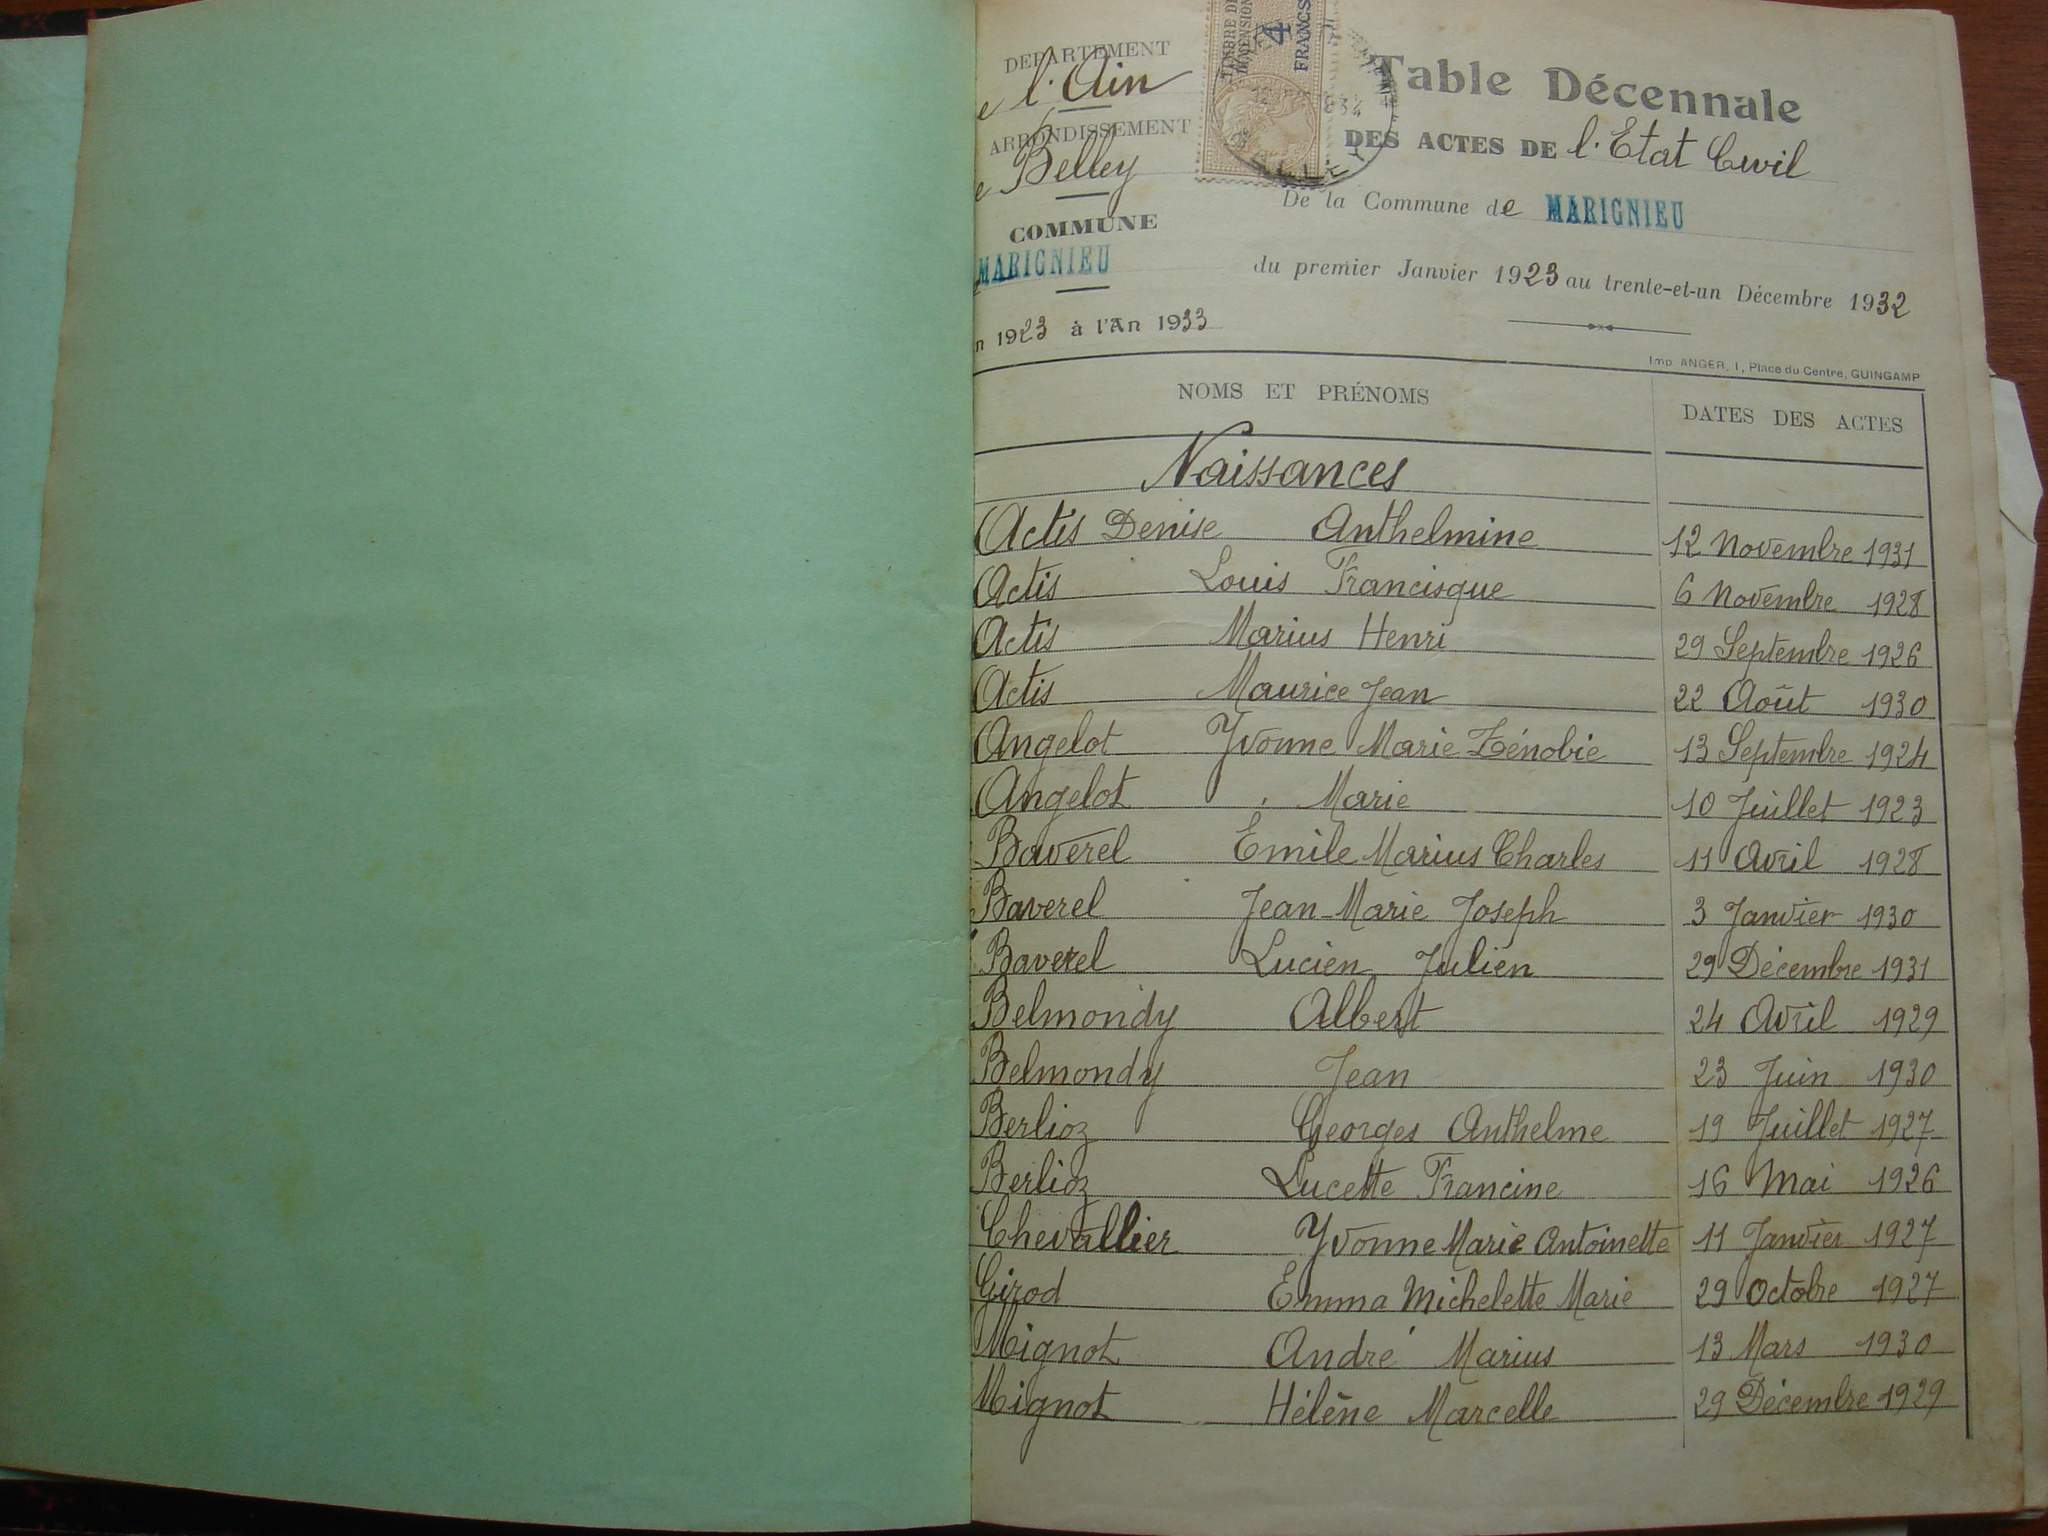 DEPARTEMENT
e l'Ain
ARRONDISSEMENT
e Belley
COMMUNE
MARIGNIEU
n 1923 à l'An 1933
TIMBRE DE
DIMENSION
4
FRANCS
Table Décennale
DES ACTES DE l'Etat Civil
De la Commune de MARIGNIEU
du premier Janvier 1923 au trente-et-un Décembre 1932
Imp ANGER, 1, Place du Centre, GUINGAMP
NOMS ET PRÉNOMS DATES DES ACTES
Naissances
Actis Denise Anthelmine 12 Novembre 1931
Actis Louis Francisque 6 Novembre 1928
Actis Marius Henri 29 Septembre 1926
Actis Maurice Jean 22 Août 1930
Angelot Yvonne Marie Zénobie 13 Septembre 1924
Angelot Marie 10 Juillet 1923
Baverel Emile Marius Charles 11 Avril 1928
Baverel Jean-Marie Joseph 3 Janvier 1930
Baverel Lucien Julien 29 Décembre 1931
Belmondy Albert 24 Avril 1929
Belmondy Jean 23 Juin 1930
Berlioz Georges Anthelme 19 Juillet 1927
Berlioz Lucette Francine 16 Mai 1926
Chevallier Yvonne Marie Antoinette 11 Janvier 1927
Girod Emma Michelette Marie 29 Octobre 1927
Mignot André Marius 13 Mars 1930
Mignot Hélène Marcelle 29 Décembre 1929